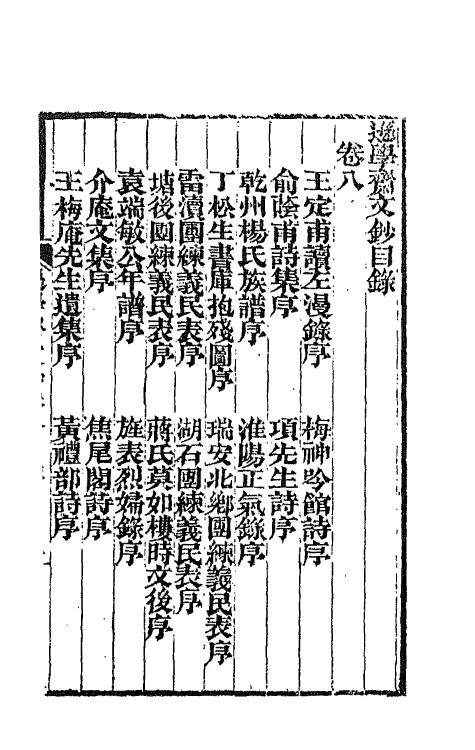 遜學齋文鈔目錄
卷八
王定甫讀左漫錄序　梅神吟館詩序
俞蔭甫詩集序　項先生詩序
乾州楊氏族譜序　淮陽正氣錄序
丁松生書庫抱殘圖序　瑞安北鄉團練義民表序
雷瀆團練義民表序　湖石團練義民表序
塘後團練義民表序　蔣氏莫如樓時文後序
袁端敏公年譜序　旌表烈婦錄序
介庵文集序　焦尾閣詩序
王梅庵先生遺集序　黃禮部詩序